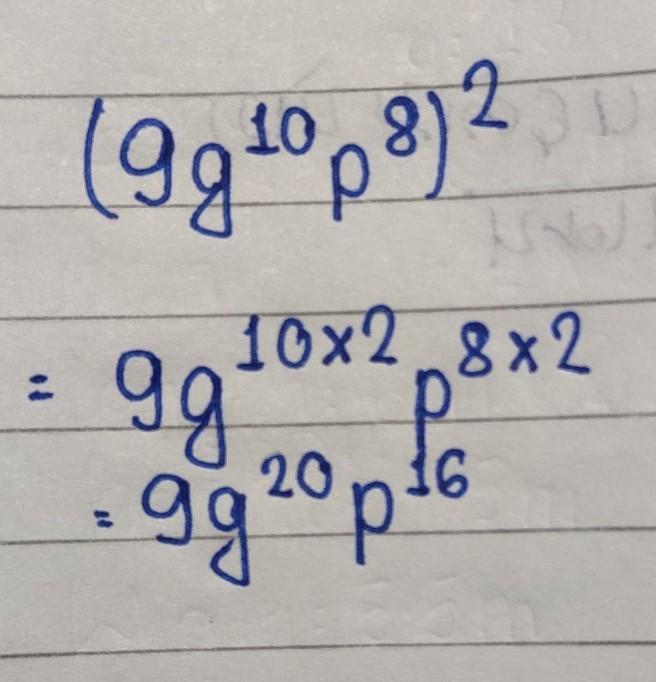 (9g¹⁰p⁸)²
= 9g¹⁰ˣ²p⁸ˣ²
= 9g²⁰p¹⁶